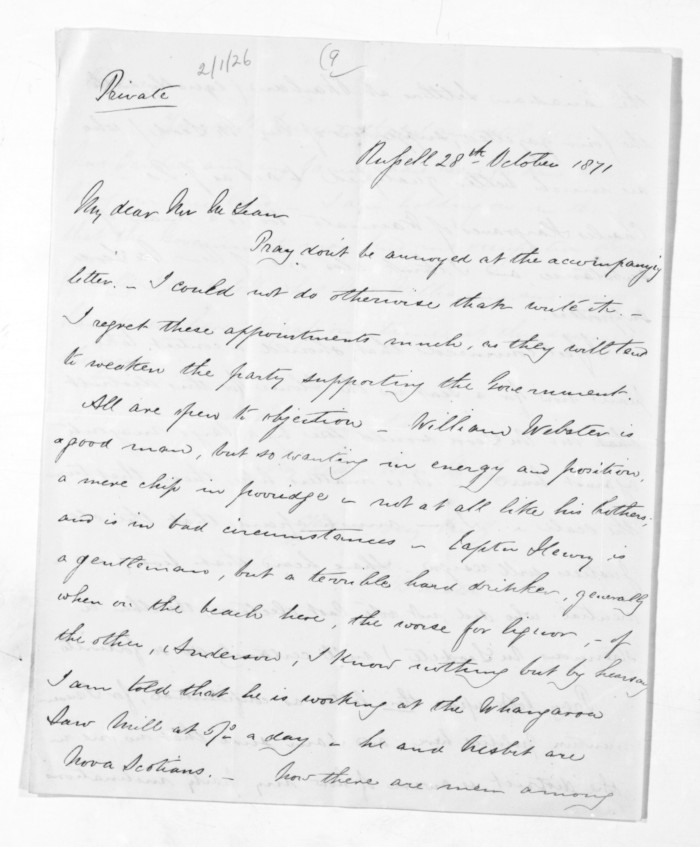 2/1/26 (9
Private
Russell 28th October 1871
My dear Mr McLean
Pray don't be annoyed at the accompanying
letter. - I could not do otherwise than write it. -
I regret these appointments much, as they will tend
to weaken the party supporting the Government
All are open to objection - William Webster is
a good man, but so wanting in energy and position,
a mere chip in porridge - not at all like his brothers;
and is in bad circumstances - Captn Henry is
a gentleman, but a terrible hard drinker, generally
when on the beach here, the worse for liquor, - of
the other, Anderson, I know nothing but by hearsay
I am told that he is working at the Whangaroa
Saw Mill at 5/- a day - he and Nesbit are
Nova Scotians. - Now there are men among